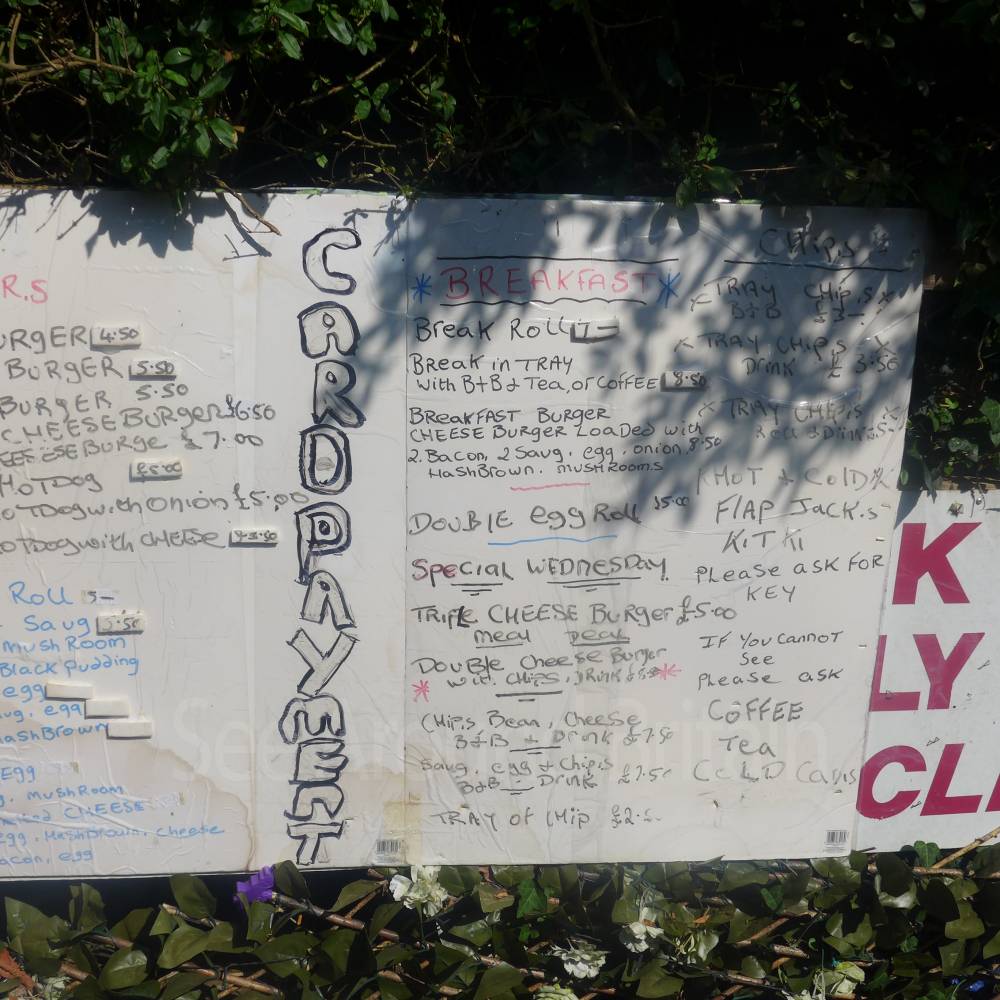 R.S
URGER 4.50
BURGER 5.50
BURGER 5.50
CHEESE BURGER £6.50
BURGE £7.00
HOTDOG
OTDOG with Onion £5,00
OTDOG with CHEESE
Roll 5-
Saug
Mush Room
Black Pudding
egg
aug, egg
HashBrown
EGG
g, MushRoom
CHEESE
egg, HashBrown, Cheese
acon, egg
CARD PAYMENT
BREAKFAST
Break Roll 7-
Break in TRAY
With B+B & Tea, or COFFEE 8.50
BREAKFAST BURGER
CHEESE BURGER Loaded with
2. Bacon, 2 Saug, egg, onion, 8.50
HashBrown. mushRooms
DOUBLE egg Roll £5.00
Special WEDNESDAY
TRIPLE CHEESE Burger £5.00
meal deal
Double Cheese Burger
With CHIPS, DRINK
CHIPS Bean, Cheese
B+B & Drink £7.50
Saug, egg & Chips
B+B & Drink £7.50
TRAY OF CHIP
CHIPS
TRAY CHIPS
B+B £3-
TRAY CHIPS
Drink £3.50
TRAY CHIPS
HOT & COLD
FLAP JACK.S
KIT KI
Please ASK FOR
KEY
IF You CANNOT
See
Please ask
COFFEE
Tea
COLD Cans
K
LY
CL